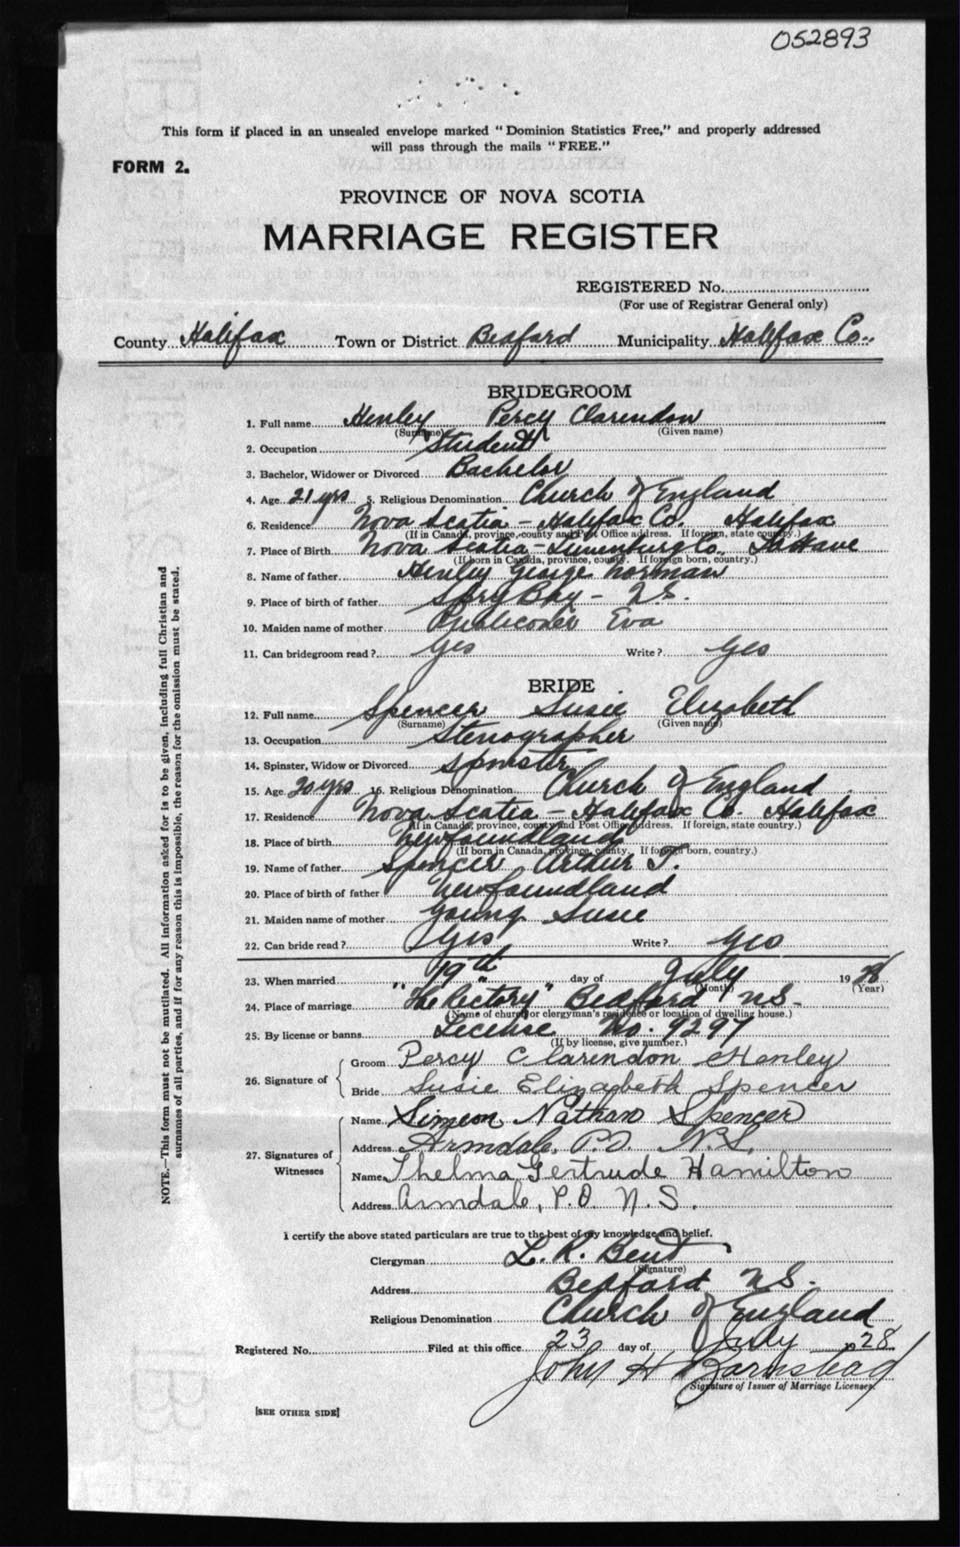 052893
This form if placed in an unsealed envelope marked "Dominion Statistics Free," and properly addressed
will pass through the mails "FREE."
FORM 2.
PROVINCE OF NOVA SCOTIA
MARRIAGE REGISTER
REGISTERED No.
(For use of Registrar General only)
County Halifax Town or District Bedford Municipality Halifax Co.
BRIDEGROOM
1. Full name Henley Percy Clarendon
(Surname) (Given name)
2. Occupation Student
3. Bachelor, Widower or Divorced Bachelor
4. Age 21 yrs 5. Religious Denomination Church of England
6. Residence Nova Scotia - Halifax Co. Halifax
(If in Canada, province, county and Post Office address. If foreign, state country.)
7. Place of Birth Nova Scotia - Lunenburg Co. LaHave
(If born in Canada, province, county. If foreign born, country.)
8. Name of father Henley George Norman
9. Place of birth of father Spry Bay - N.S.
10. Maiden name of mother Eva
11. Can bridegroom read? Yes Write? Yes
BRIDE
12. Full name Spencer Susie Elizabeth
(Surname) (Given name)
13. Occupation Stenographer
14. Spinster, Widow or Divorced Spinster
15. Age 20 yrs 16. Religious Denomination Church of England
17. Residence Nova Scotia - Halifax Co Halifax
(If in Canada, province, county and Post Office address. If foreign, state country.)
18. Place of birth Newfoundland
(If born in Canada, province, county. If foreign born, country.)
19. Name of father Spencer Arthur T.
20. Place of birth of father Newfoundland
21. Maiden name of mother Young Susie
22. Can bride read? Yes Write? Yes
23. When married 19th day of July 1928
(Month) (Year)
24. Place of marriage "The Rectory" Bedford N.S.
(Name of church or clergyman's residence or location of dwelling house.)
25. By license or banns License No. 9297
(If by license, give number.)
26. Signature of Groom Percy Clarendon Henley
Bride Susie Elizagbeth Spencer
27. Signatures of Witnesses
Name Simeon Nathan Spencer
Address Armdale, P.O. N.S.
Name Thelma Gertrude Hamilton
Address Armdale, P.O. N.S.
I certify the above stated particulars are true to the best of my knowledge and belief.
Clergyman L. R. Bent
(Signature)
Address Bedford N.S.
Religious Denomination Church of England
Registered No. Filed at this office 23 day of July 1928
John H Barnstead
Signature of Issuer of Marriage Licenses.
[SEE OTHER SIDE]
NOTE.—This form must not be mutilated. All information asked for is to be given, including full Christian and
surnames of all parties, and if for any reason this is impossible, the reason for the omission must be stated.